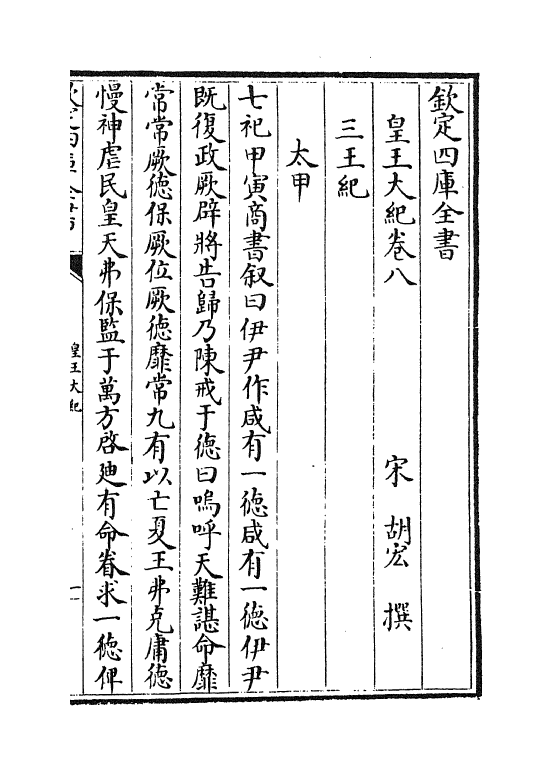 欽定四庫全書
皇王大紀卷八
宋 胡宏 撰
三王紀
太甲
七祀甲寅商書叙曰伊尹作咸有一徳咸有一徳伊尹
既復政厥辟將告歸乃陳戒于徳曰嗚呼天難諶命靡
常常厥徳保厥位厥徳靡常九有以亡夏王弗克庸徳
慢神虐民皇天弗保監于萬方啓廸有命眷求一徳俾
皇王大紀